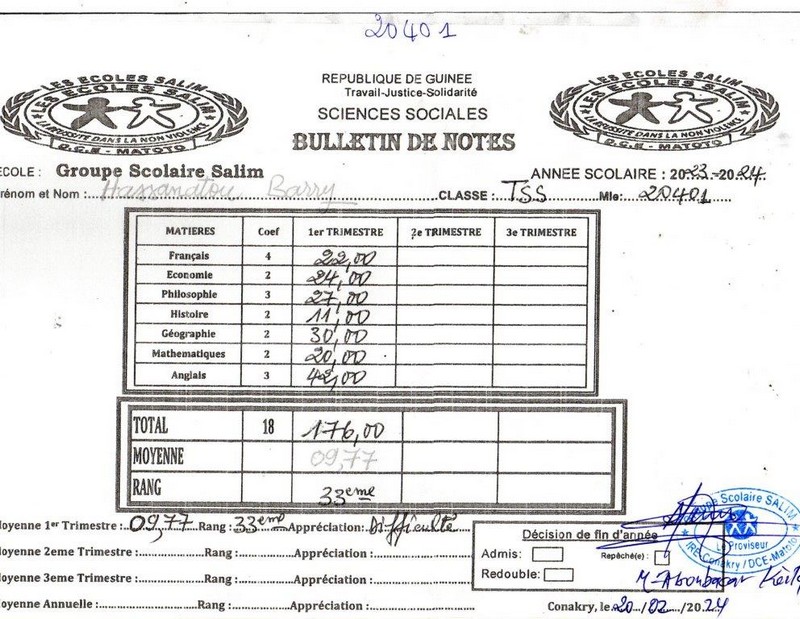 20401
LES ECOLES SALIM
LES ECOLES SALIM
LA REUSSITE DANS LA NON VIOLENCE
D.C.E - MATOTO
REPUBLIQUE DE GUINEE
Travail-Justice-Solidarité
SCIENCES SOCIALES
BULLETIN DE NOTES
LES ECOLES SALIM
LES ECOLES SALIM
LA REUSSITE DANS LA NON VIOLENCE
D.C.E - MATOTO
ECOLE : Groupe Scolaire Salim ANNEE SCOLAIRE : 2023-2024
rénom et Nom : Hassanatou Barry CLASSE : TSS Mle: 20401
MATIERES Coef 1er TRIMESTRE 2e TRIMESTRE 3e TRIMESTRE
Français 4 22,00
Economie 2 24,00
Philosophie 3 27,00
Histoire 2 11,00
Géographie 2 30,00
Mathematiques 2 20,00
Anglais 3 42,00
TOTAL 18 176,00
MOYENNE 09,77
RANG 33eme
oyenne 1er Trimestre : 09,77 Rang : 33eme Appréciation: Difficulté
oyenne 2eme Trimestre : Rang : Appréciation :
oyenne 3eme Trimestre : Rang : Appréciation :
oyenne Annuelle : Rang : Appréciation :
Décision de fin d'année
Admis: Repêché(e) :
Redouble:
Groupe Scolaire SALIM
Le Proviseur
IRE Conakry / DCE-Matoto
M. Aboubacar
Conakry, le 20/02/2024